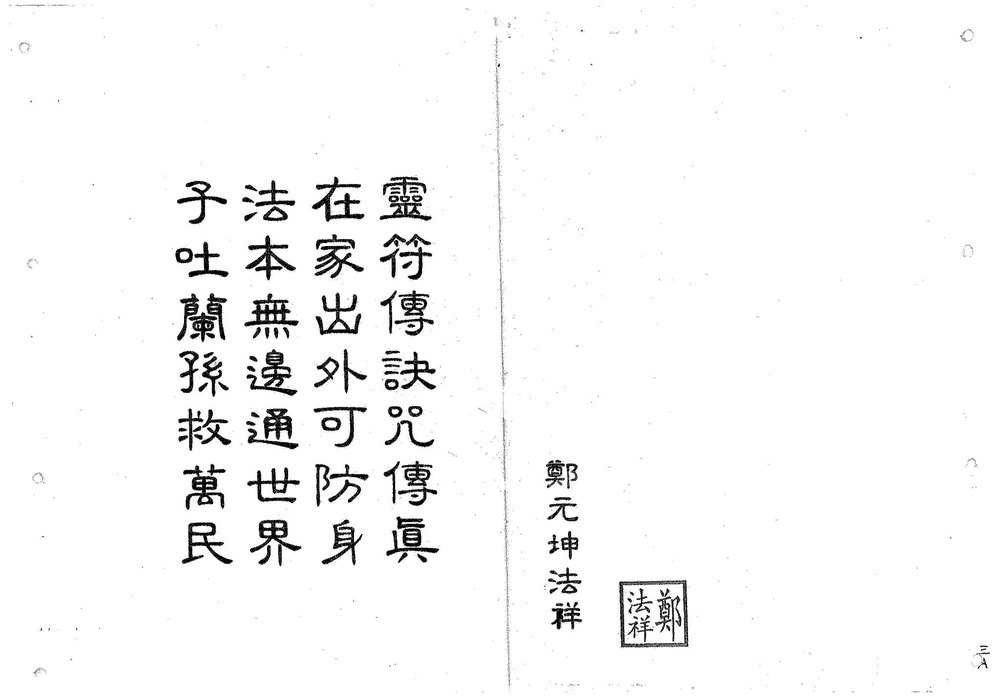 鄭元坤法祥
鄭
法祥
三A
靈符傳訣咒傳眞
在家出外可防身
法本無邊通世界
子吐蘭孫救萬民